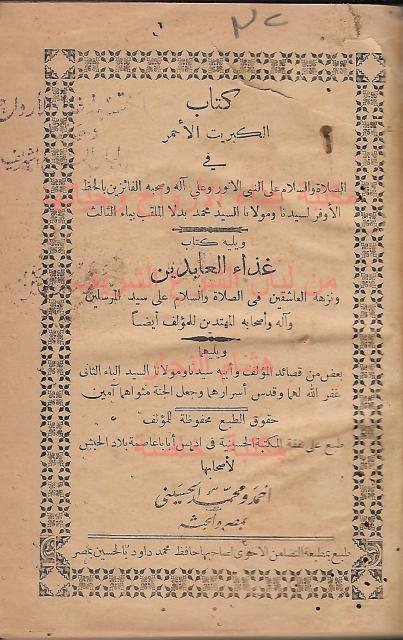 كتاب
الكبريت الأحمر
في
الصلاة والسلام على النبي الانور وعلى آله وصحبه الفائزين بالحظ
الأوفر لسيدنا ومولانا السيد محمد بدلا الملقب بباء الثالث
ويليه كتاب
غذاء العابدين
ونزهة العاشقين في الصلاة والسلام على سيد المرسلين
وآله وأصحابه المهتدين للمؤلف أيضاً
ويليهما
بعض من قصائد المؤلف وأبيه سيدنا ومولانا السيد الباء الثاني
غفر الله لهما وقدس أسرارهما وجعل الجنة مثواهما آمين
حقوق الطبع محفوظة للمؤلف
طبع على نفقة المكتبة الحسينية في اديس أبابا عاصمة بلاد الحبش
لأصحابها
احمد ومحمد الحسيني
بمصر والحبشه
طبع بمطبعة التضامن الاخوى لصاحبها حافظ محمد داود بالحسين بمصر
هشام النجار